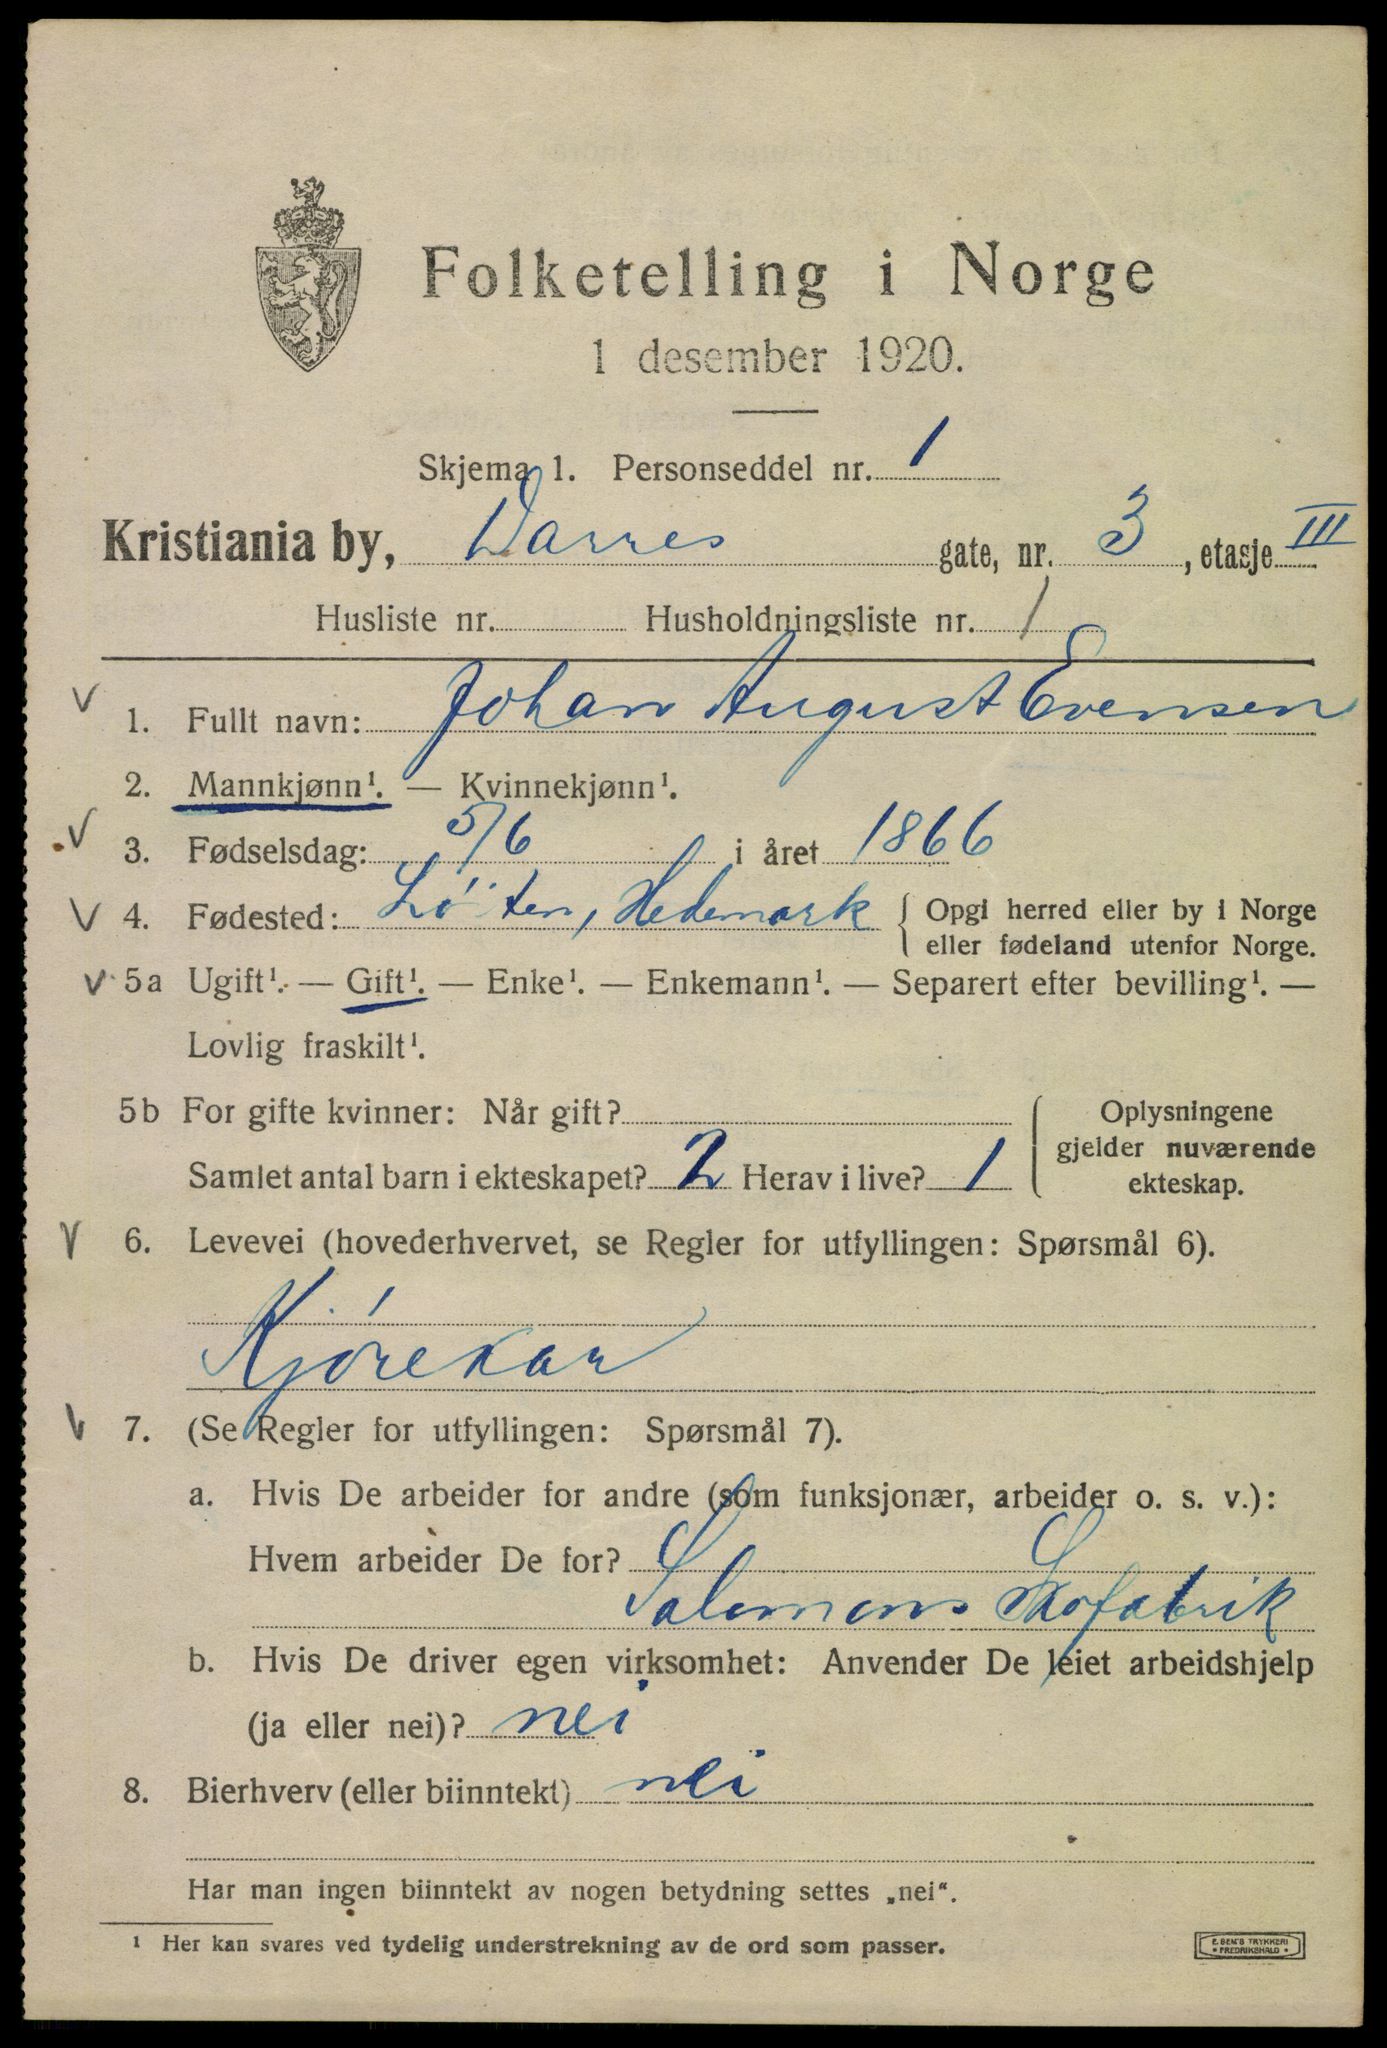 Folketelling i Norge
1 desember 1920.
Skjema 1. Personseddel nr. 1
Kristiania by, Darres gate, nr. 3, etasje III
Husliste nr. Husholdningsliste nr. 1
1. Fullt navn: Johan August Evensen
2. Mannkjønn¹. — Kvinnekjønn¹.
3. Fødselsdag: 5/6 i året 1866
4. Fødested: Löiten, Hedemark { Opgi herred eller by i Norge
eller fødeland utenfor Norge.
5a Ugift¹. — Gift¹. — Enke¹. — Enkemann¹. — Separert efter bevilling¹. —
Lovlig fraskilt¹.
5b For gifte kvinner: Når gift? { Oplysningene
gjelder nuværende
Samlet antal barn i ekteskapet? 2 Herav i live? 1 ekteskap.
6. Levevei (hovederhvervet, se Regler for utfyllingen: Spørsmål 6).
Kjörekar
7. (Se Regler for utfyllingen: Spørsmål 7).
a. Hvis De arbeider for andre (som funksjonær, arbeider o. s. v.):
Hvem arbeider De for?
Salomons Skofabrik
b. Hvis De driver egen virksomhet: Anvender De leiet arbeidshjelp
(ja eller nei)? nei
8. Bierhverv (eller biinntekt) nei
Har man ingen biinntekt av nogen betydning settes „nei“.
¹ Her kan svares ved tydelig understrekning av de ord som passer.
E. SEM'S TRYKKERI
• FREDRIKSHALD •